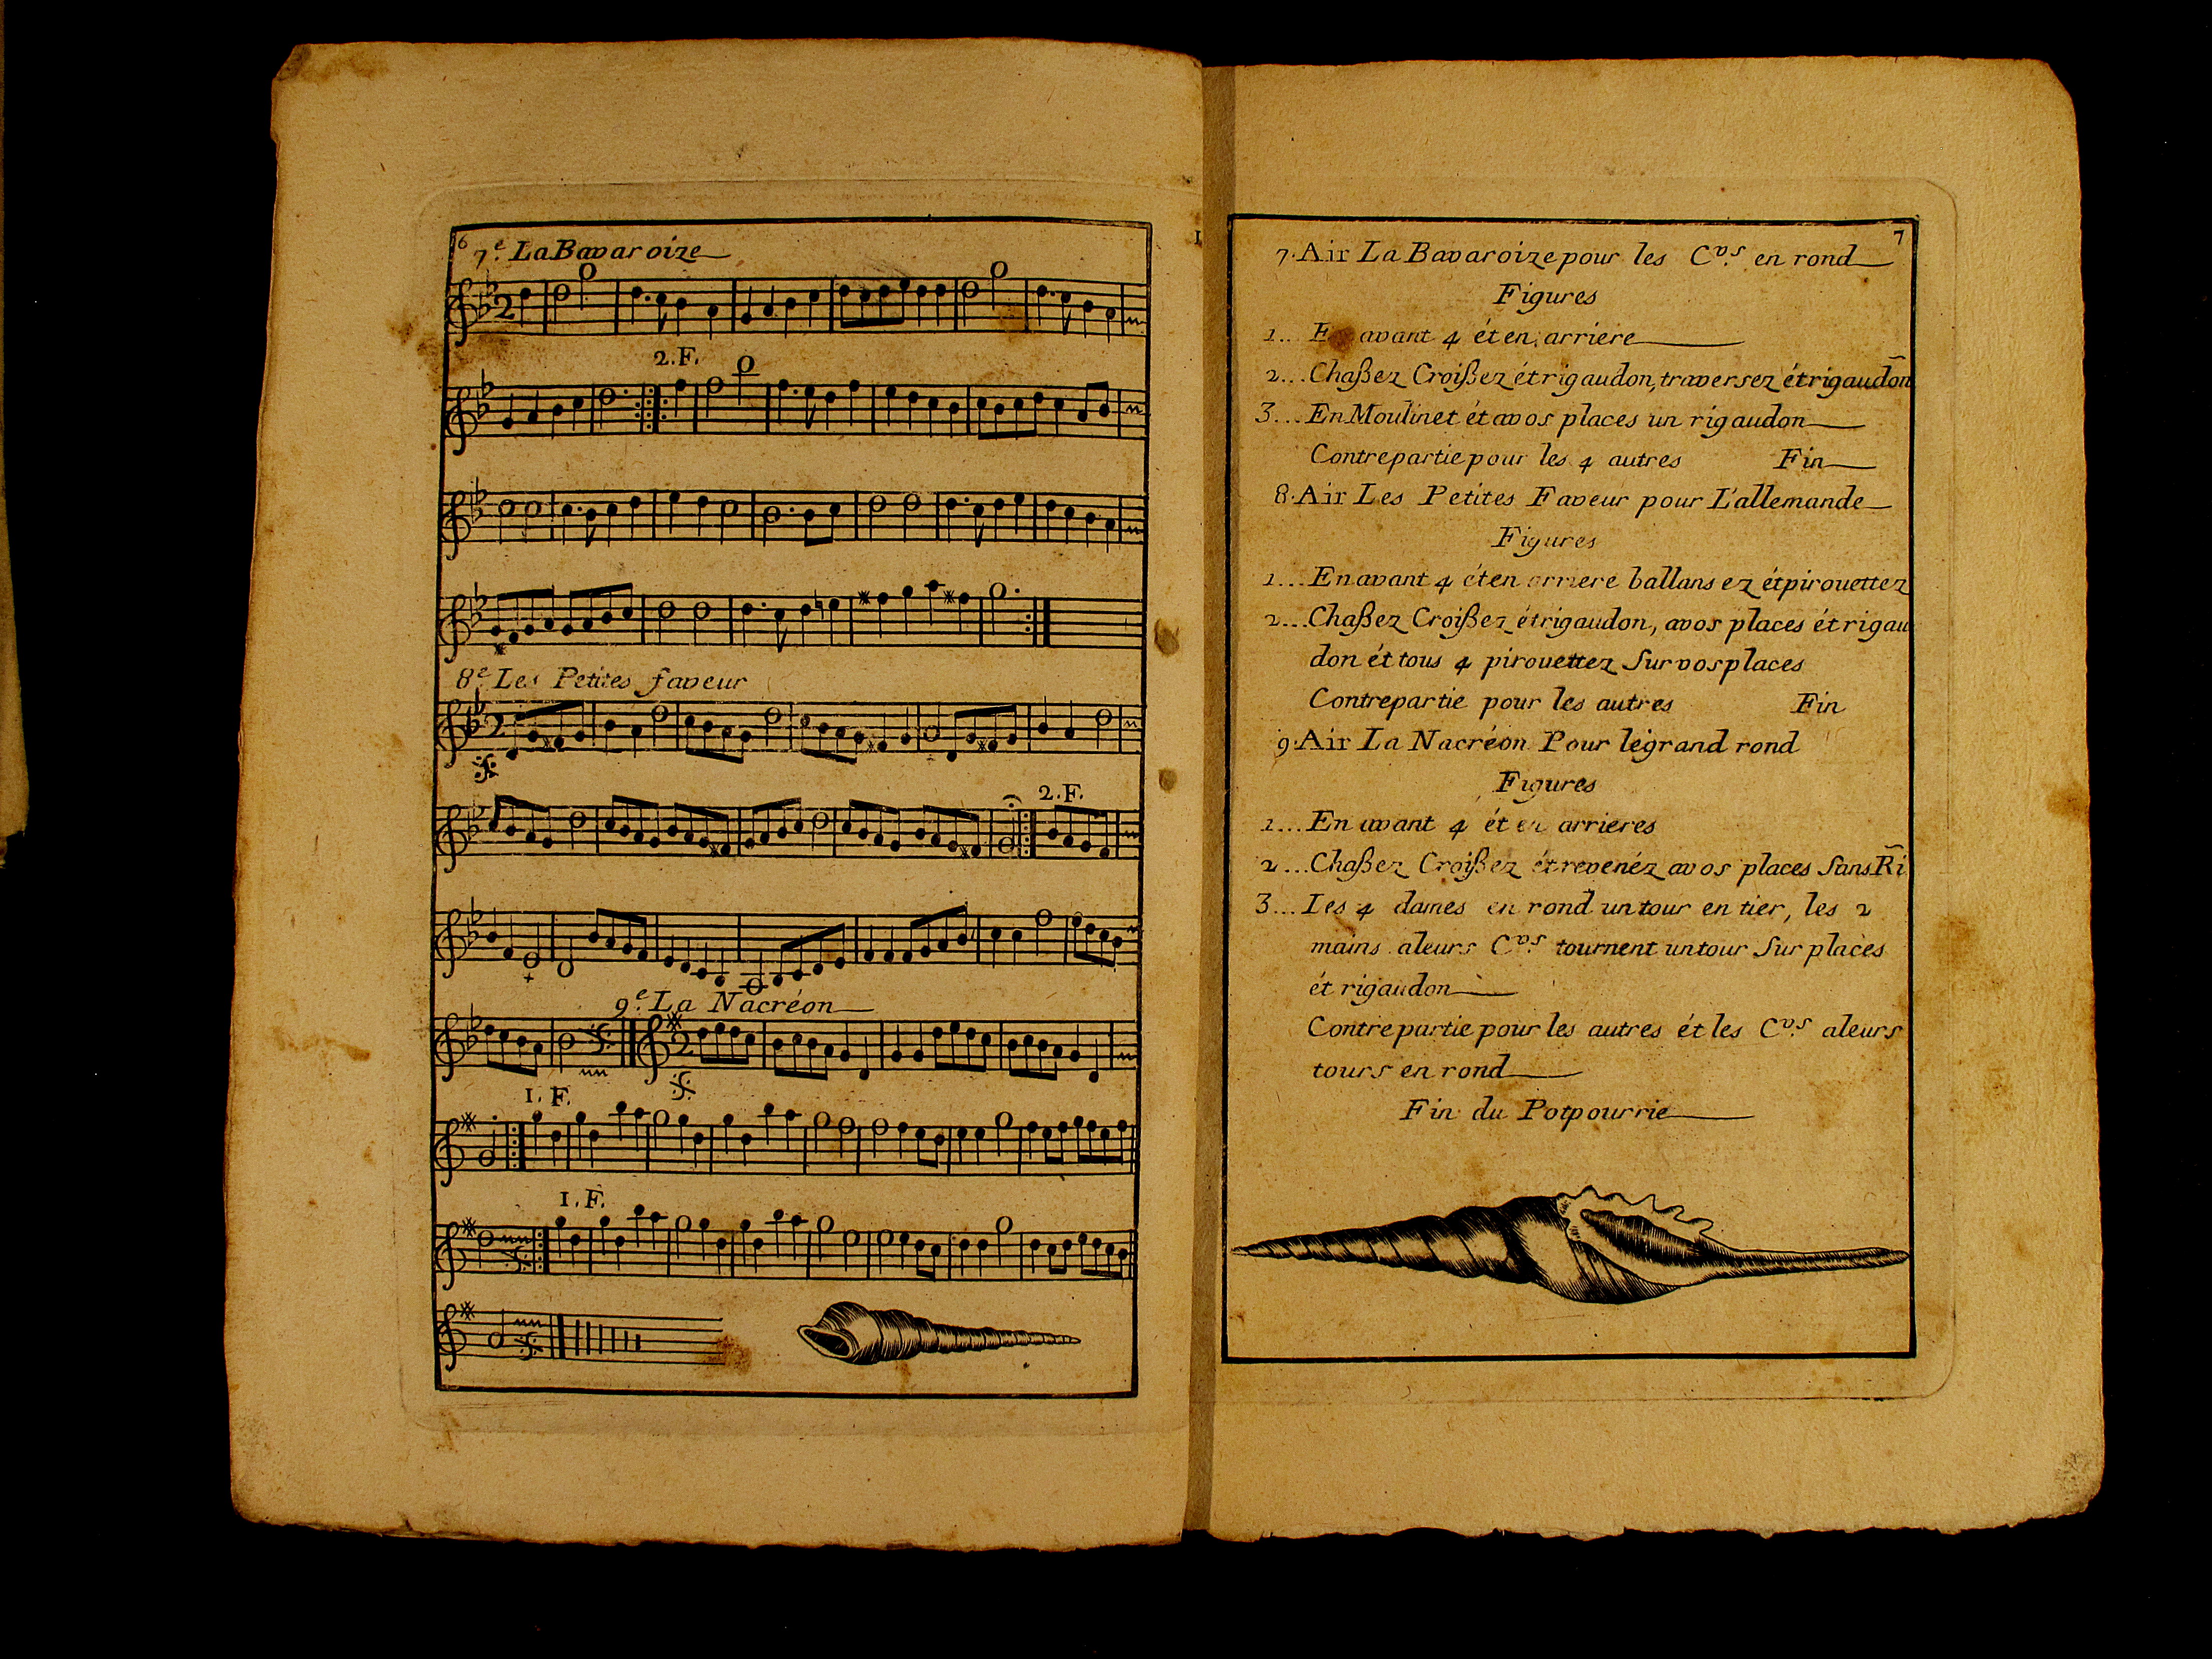 6
7.e La Bavaroize
2
2.F.
8.e Les Petites faveur
2
2.F.
9.e La Nacréon
2
1. F.
1. F.
7
7. Air La Bavaroize pour les C.vs en rond
Figures
1... En avant 4 ét en arriere
2... Chaßez Croißez ét rigaudon, traversez ét rigaudon
3... En Moulinet ét avos places un rigaudon
Contrepartie pour les 4 autres Fin
8. Air Les Petites Faveur pour L'allemande
Figures
1... En avant 4 ét en arriere ballansez ét pirouettez
2... Chaßez Croißez ét rigaudon, avos places ét rigau
don ét tous 4 pirouettez Sur vos places
Contrepartie pour les autres Fin
9. Air La Nacréon Pour légrand rond
Figures
1... En avant 4 ét en arrieres
2... Chaßez Croißez ét revenéz avos places Sans Ri
3... Les 4 dames en rond un tour en tier, les 2
mains aleurs C.vs tournent un tour Sur places
ét rigaudon
Contrepartie pour les autres ét les C.vs aleurs
tours en rond
Fin du Potpourrie